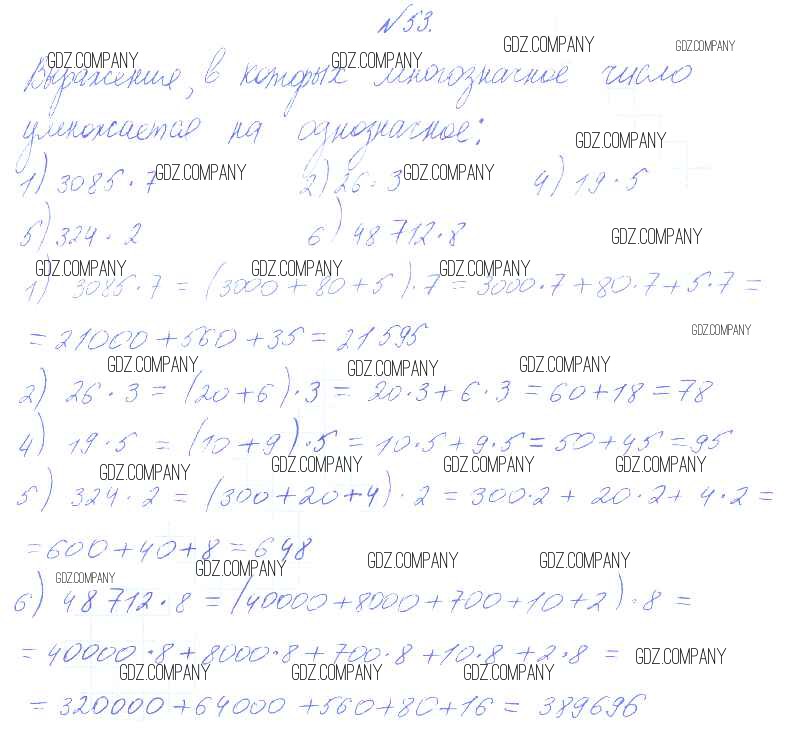 № 53.
Выражения, в которых многозначное число
умножается на однозначное:
1) 3085 · 7 2) 26 · 3 4) 19 · 5
5) 324 · 2 6) 48 712 · 8
1) 3085 · 7 = (3000 + 80 + 5) · 7 = 3000 · 7 + 80 · 7 + 5 · 7 =
= 21000 + 560 + 35 = 21 595
2) 26 · 3 = (20 + 6) · 3 = 20 · 3 + 6 · 3 = 60 + 18 = 78
4) 19 · 5 = (10 + 9) · 5 = 10 · 5 + 9 · 5 = 50 + 45 = 95
5) 324 · 2 = (300 + 20 + 4) · 2 = 300 · 2 + 20 · 2 + 4 · 2 =
= 600 + 40 + 8 = 648
6) 48 712 · 8 = (40000 + 8000 + 700 + 10 + 2) · 8 =
= 40000 · 8 + 8000 · 8 + 700 · 8 + 10 · 8 + 2 · 8 =
= 320000 + 64000 + 560 + 80 + 16 = 389696
GDZ.COMPANY GDZ.COMPANY GDZ.COMPANY GDZ.COMPANY
GDZ.COMPANY
GDZ.COMPANY GDZ.COMPANY
GDZ.COMPANY
GDZ.COMPANY GDZ.COMPANY GDZ.COMPANY
GDZ.COMPANY
GDZ.COMPANY GDZ.COMPANY GDZ.COMPANY
GDZ.COMPANY GDZ.COMPANY GDZ.COMPANY GDZ.COMPANY
GDZ.COMPANY GDZ.COMPANY GDZ.COMPANY GDZ.COMPANY
GDZ.COMPANY
GDZ.COMPANY GDZ.COMPANY GDZ.COMPANY